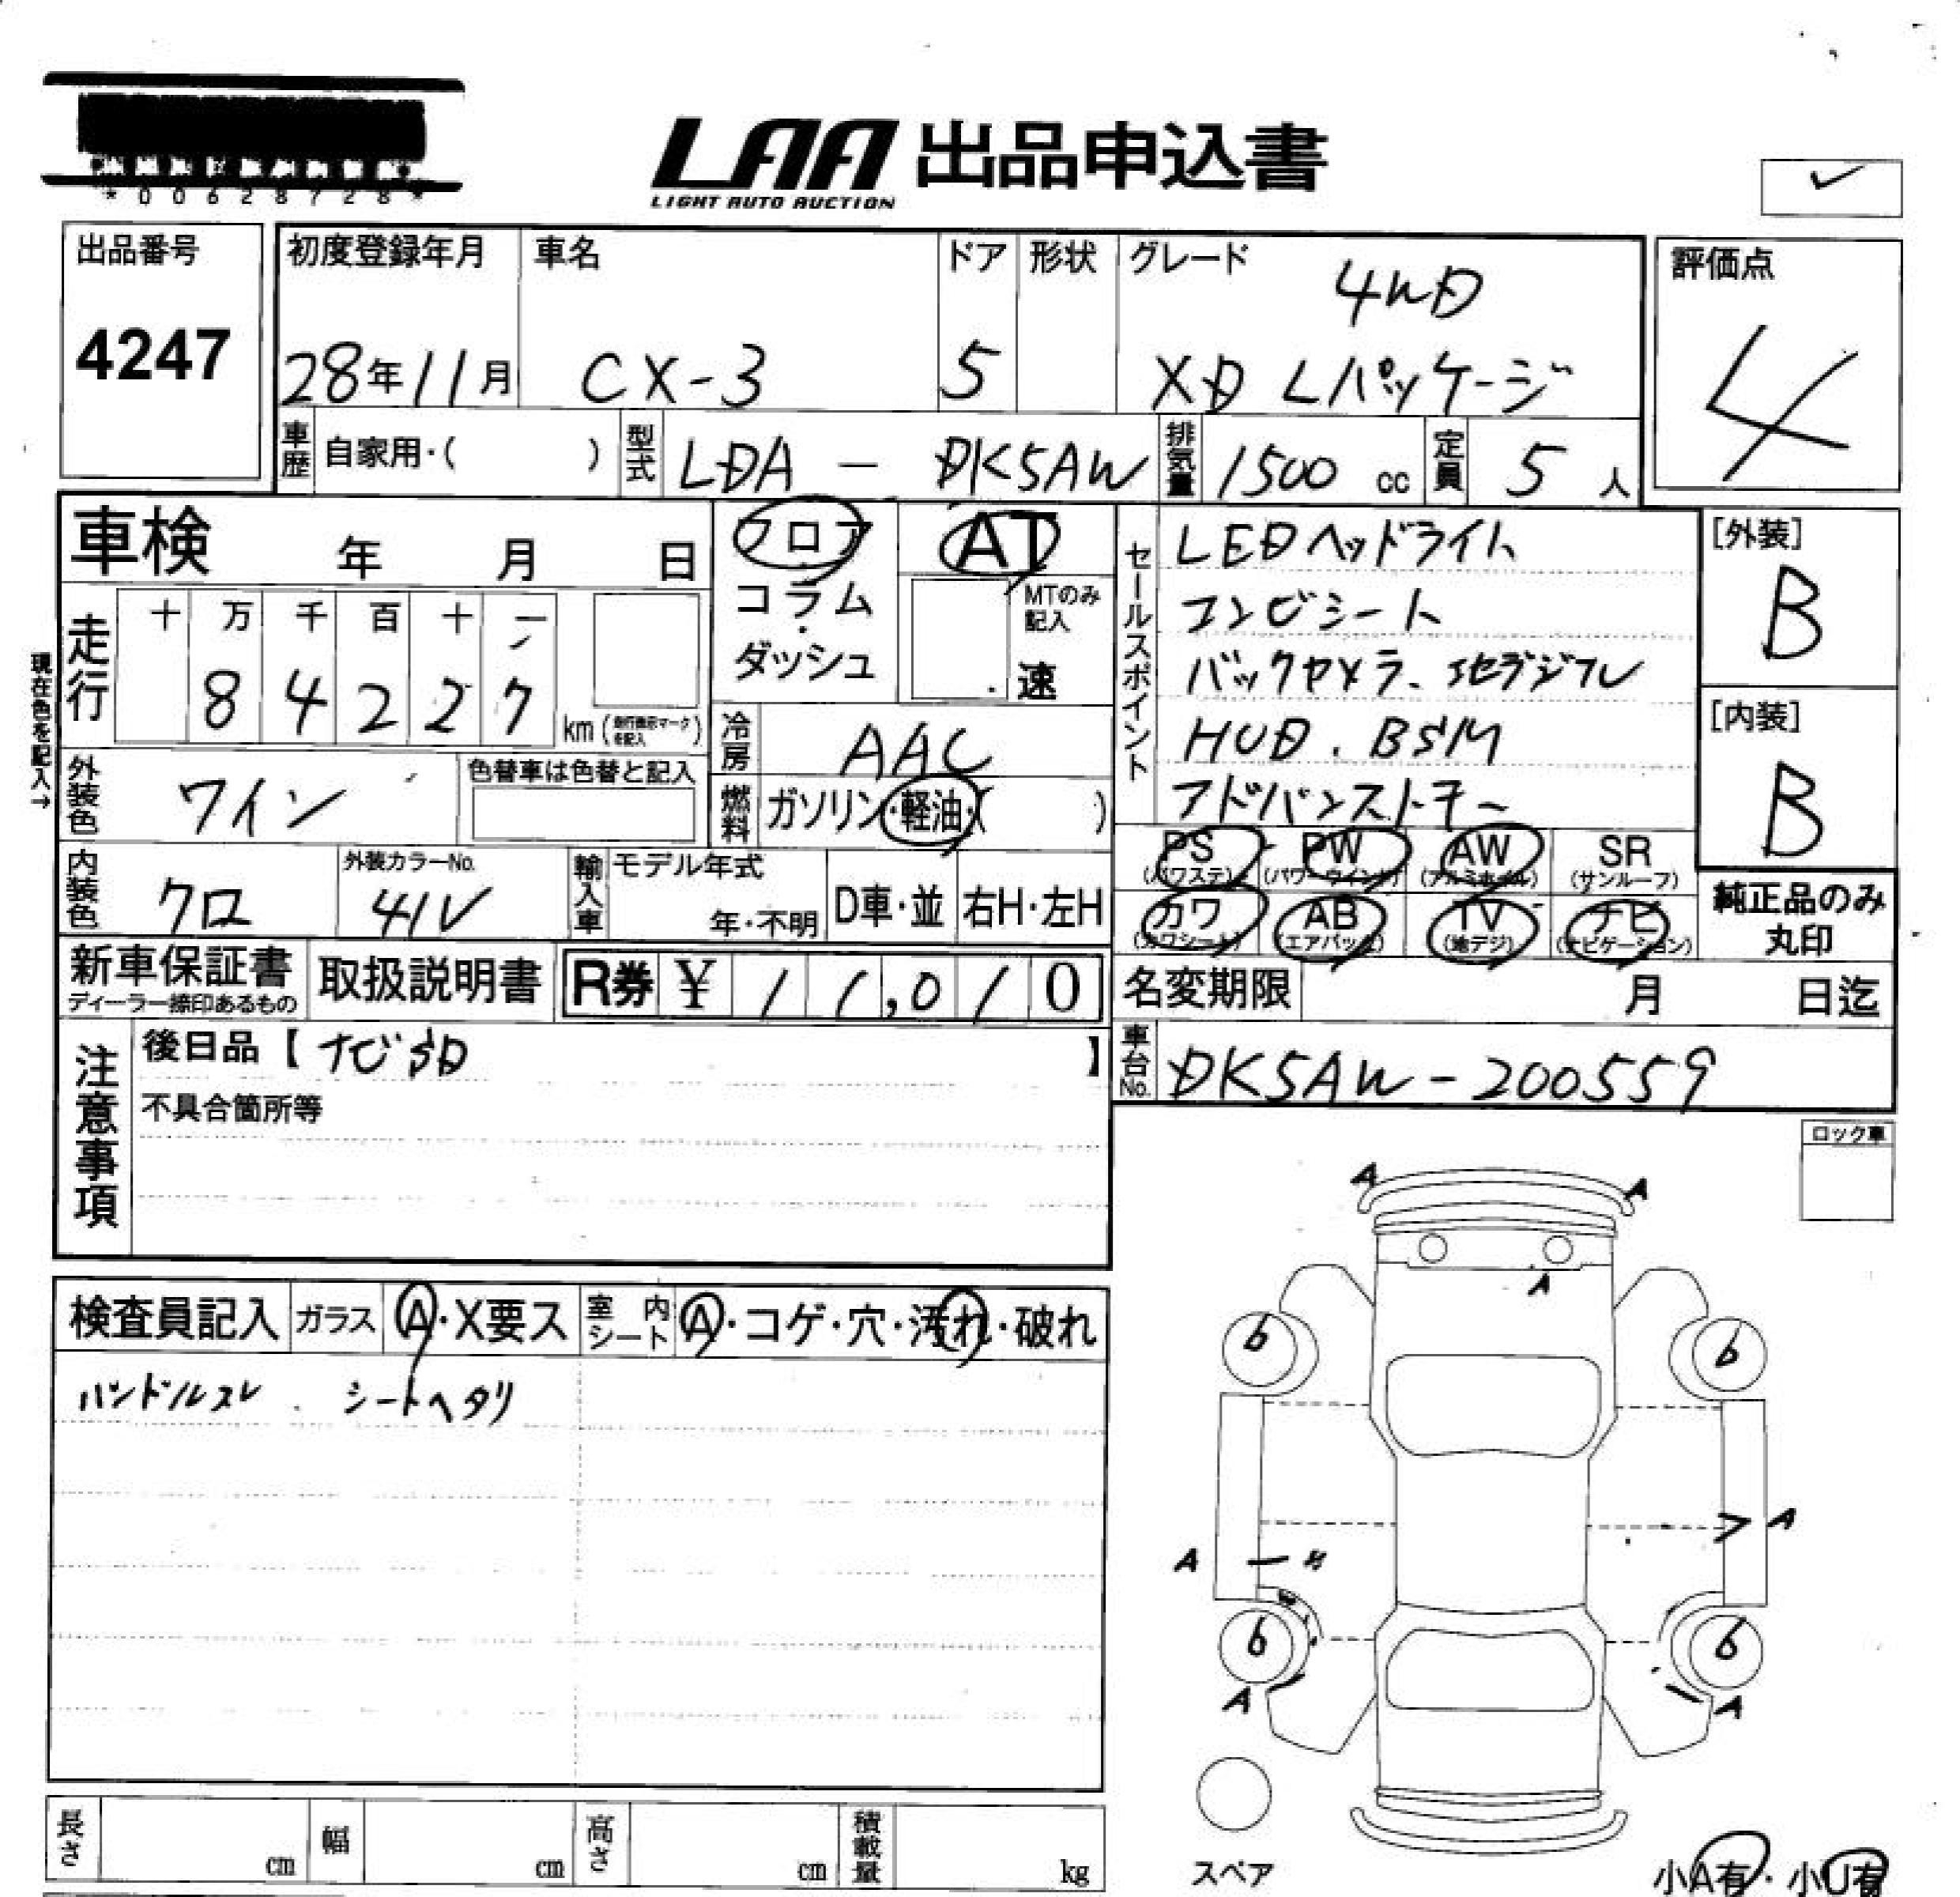 *00628728*
LAA 出品申込書
LIGHT AUTO AUCTION
出品番号
4247
初度登録年月
28年11月
車名
CX-3
ドア
5
形状
グレード
4WD
XD Lパッケージ
評価点
4
車歴
自家用・( )
型式
LDA - DK5AW
排気量
1500 cc
定員
5 人
車検 年 月 日
現在色を記入→
走行
十 万 千 百 十 一
8 4 2 2 7
km(走行表示マークを記入)
フロア
コラム
・
ダッシュ
AT
MTのみ記入
速
冷房
AAC
燃料
ガソリン・軽油・( )
外装色
ワイン
色替車は色替と記入
内装色
クロ
外装カラーNo.
41V
輸入車
モデル年式
年・不明
D車・並
右H・左H
セールスポイント
LEDヘッドライト
コンビシート
バックカメラ、地デジフル
HUD、BSM
アドバンストキー
[外装]
B
[内装]
B
PS (パワステ)
PW (パワーウインド)
AW (アルミホイル)
SR (サンルーフ)
カワ (カワシート)
AB (エアバック)
TV (地デジ)
ナビ (ナビゲーション)
純正品のみ
丸印
新車保証書
ディーラー捺印あるもの
取扱説明書
R券 ¥ 11,010
名変期限 月 日迄
車台No.
DK5AW-200559
注意事項
後日品【 】
不具合箇所等
ロック車
検査員記入
ガラス
A・X要ス
室内シート
A・コゲ・穴・汚れ・破れ
ハンドルスレ、シートヘタリ
A A
A
6 6
A
A
6 6
A A
スペア
長さ cm
幅 cm
高さ cm
積載量 kg
小A有・小U有